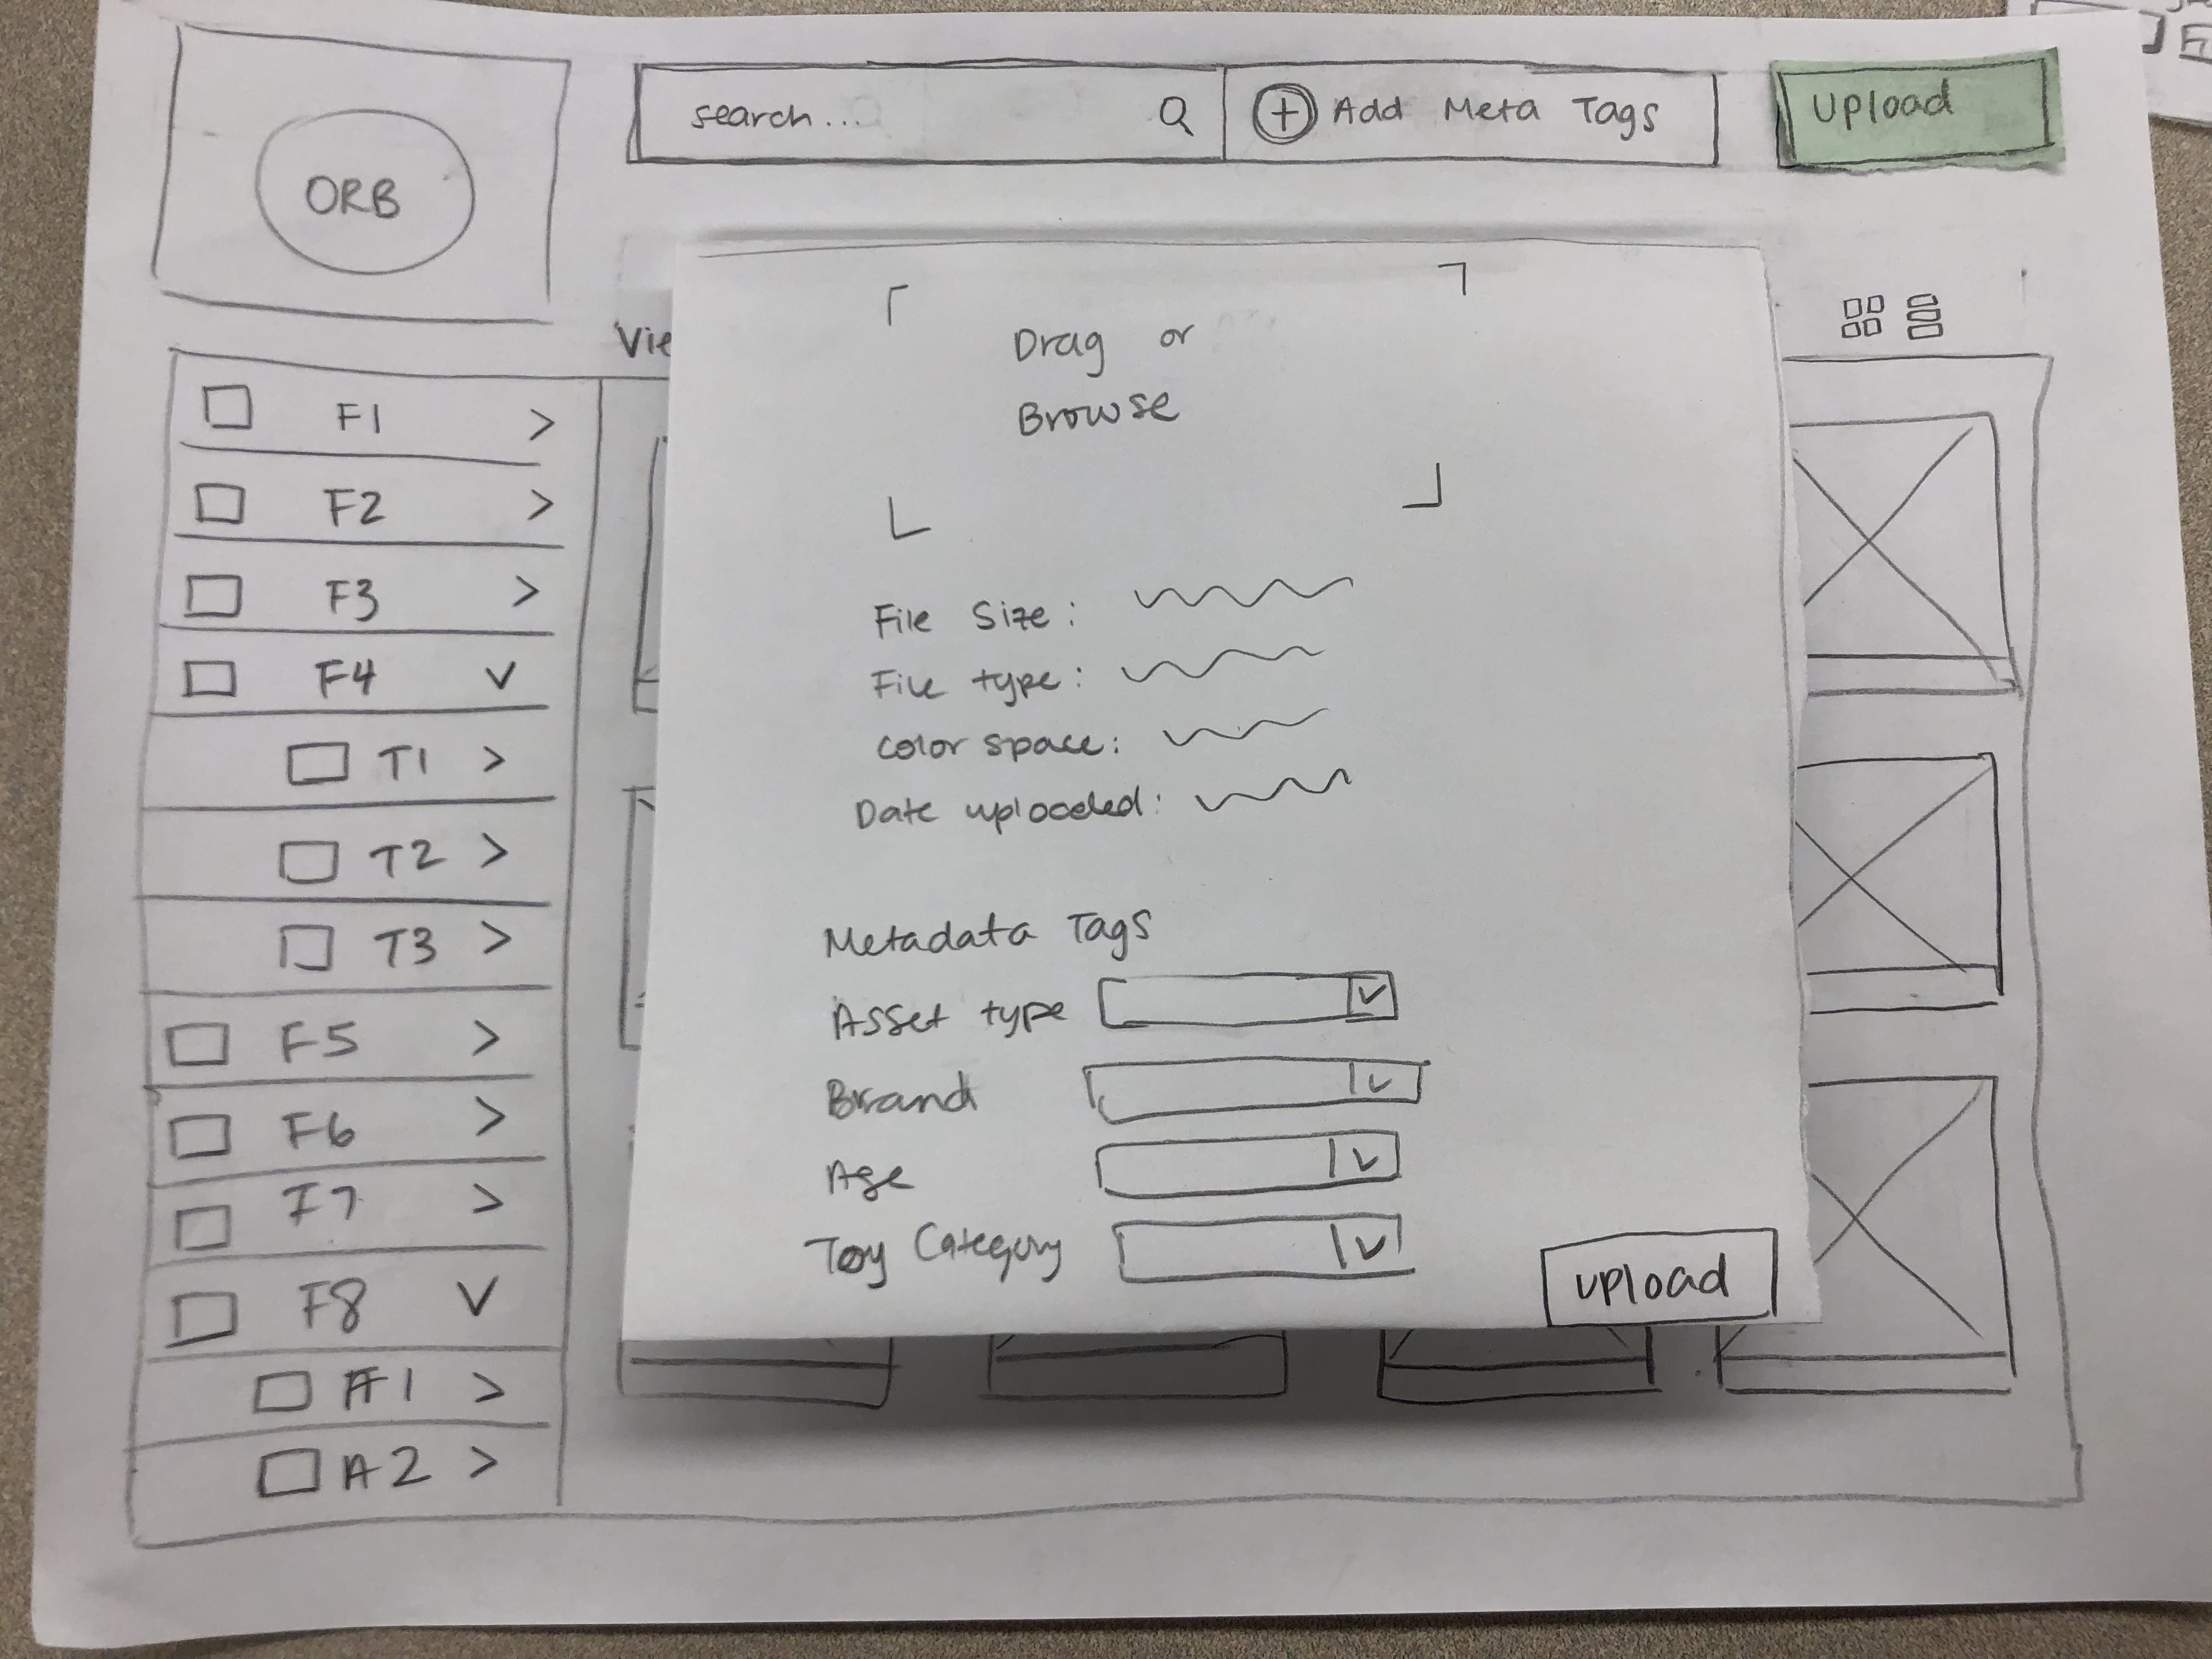 search...
Add Meta Tags
Upload
ORB
Vie
F1
F2
F3
F4
T1
T2
T3
F5
F6
F7
F8
A1
A2
Drag or
Browse
File Size:
File type:
color space:
Date uploaded:
Metadata Tags
Asset type
Brand
Age
Toy Category
upload